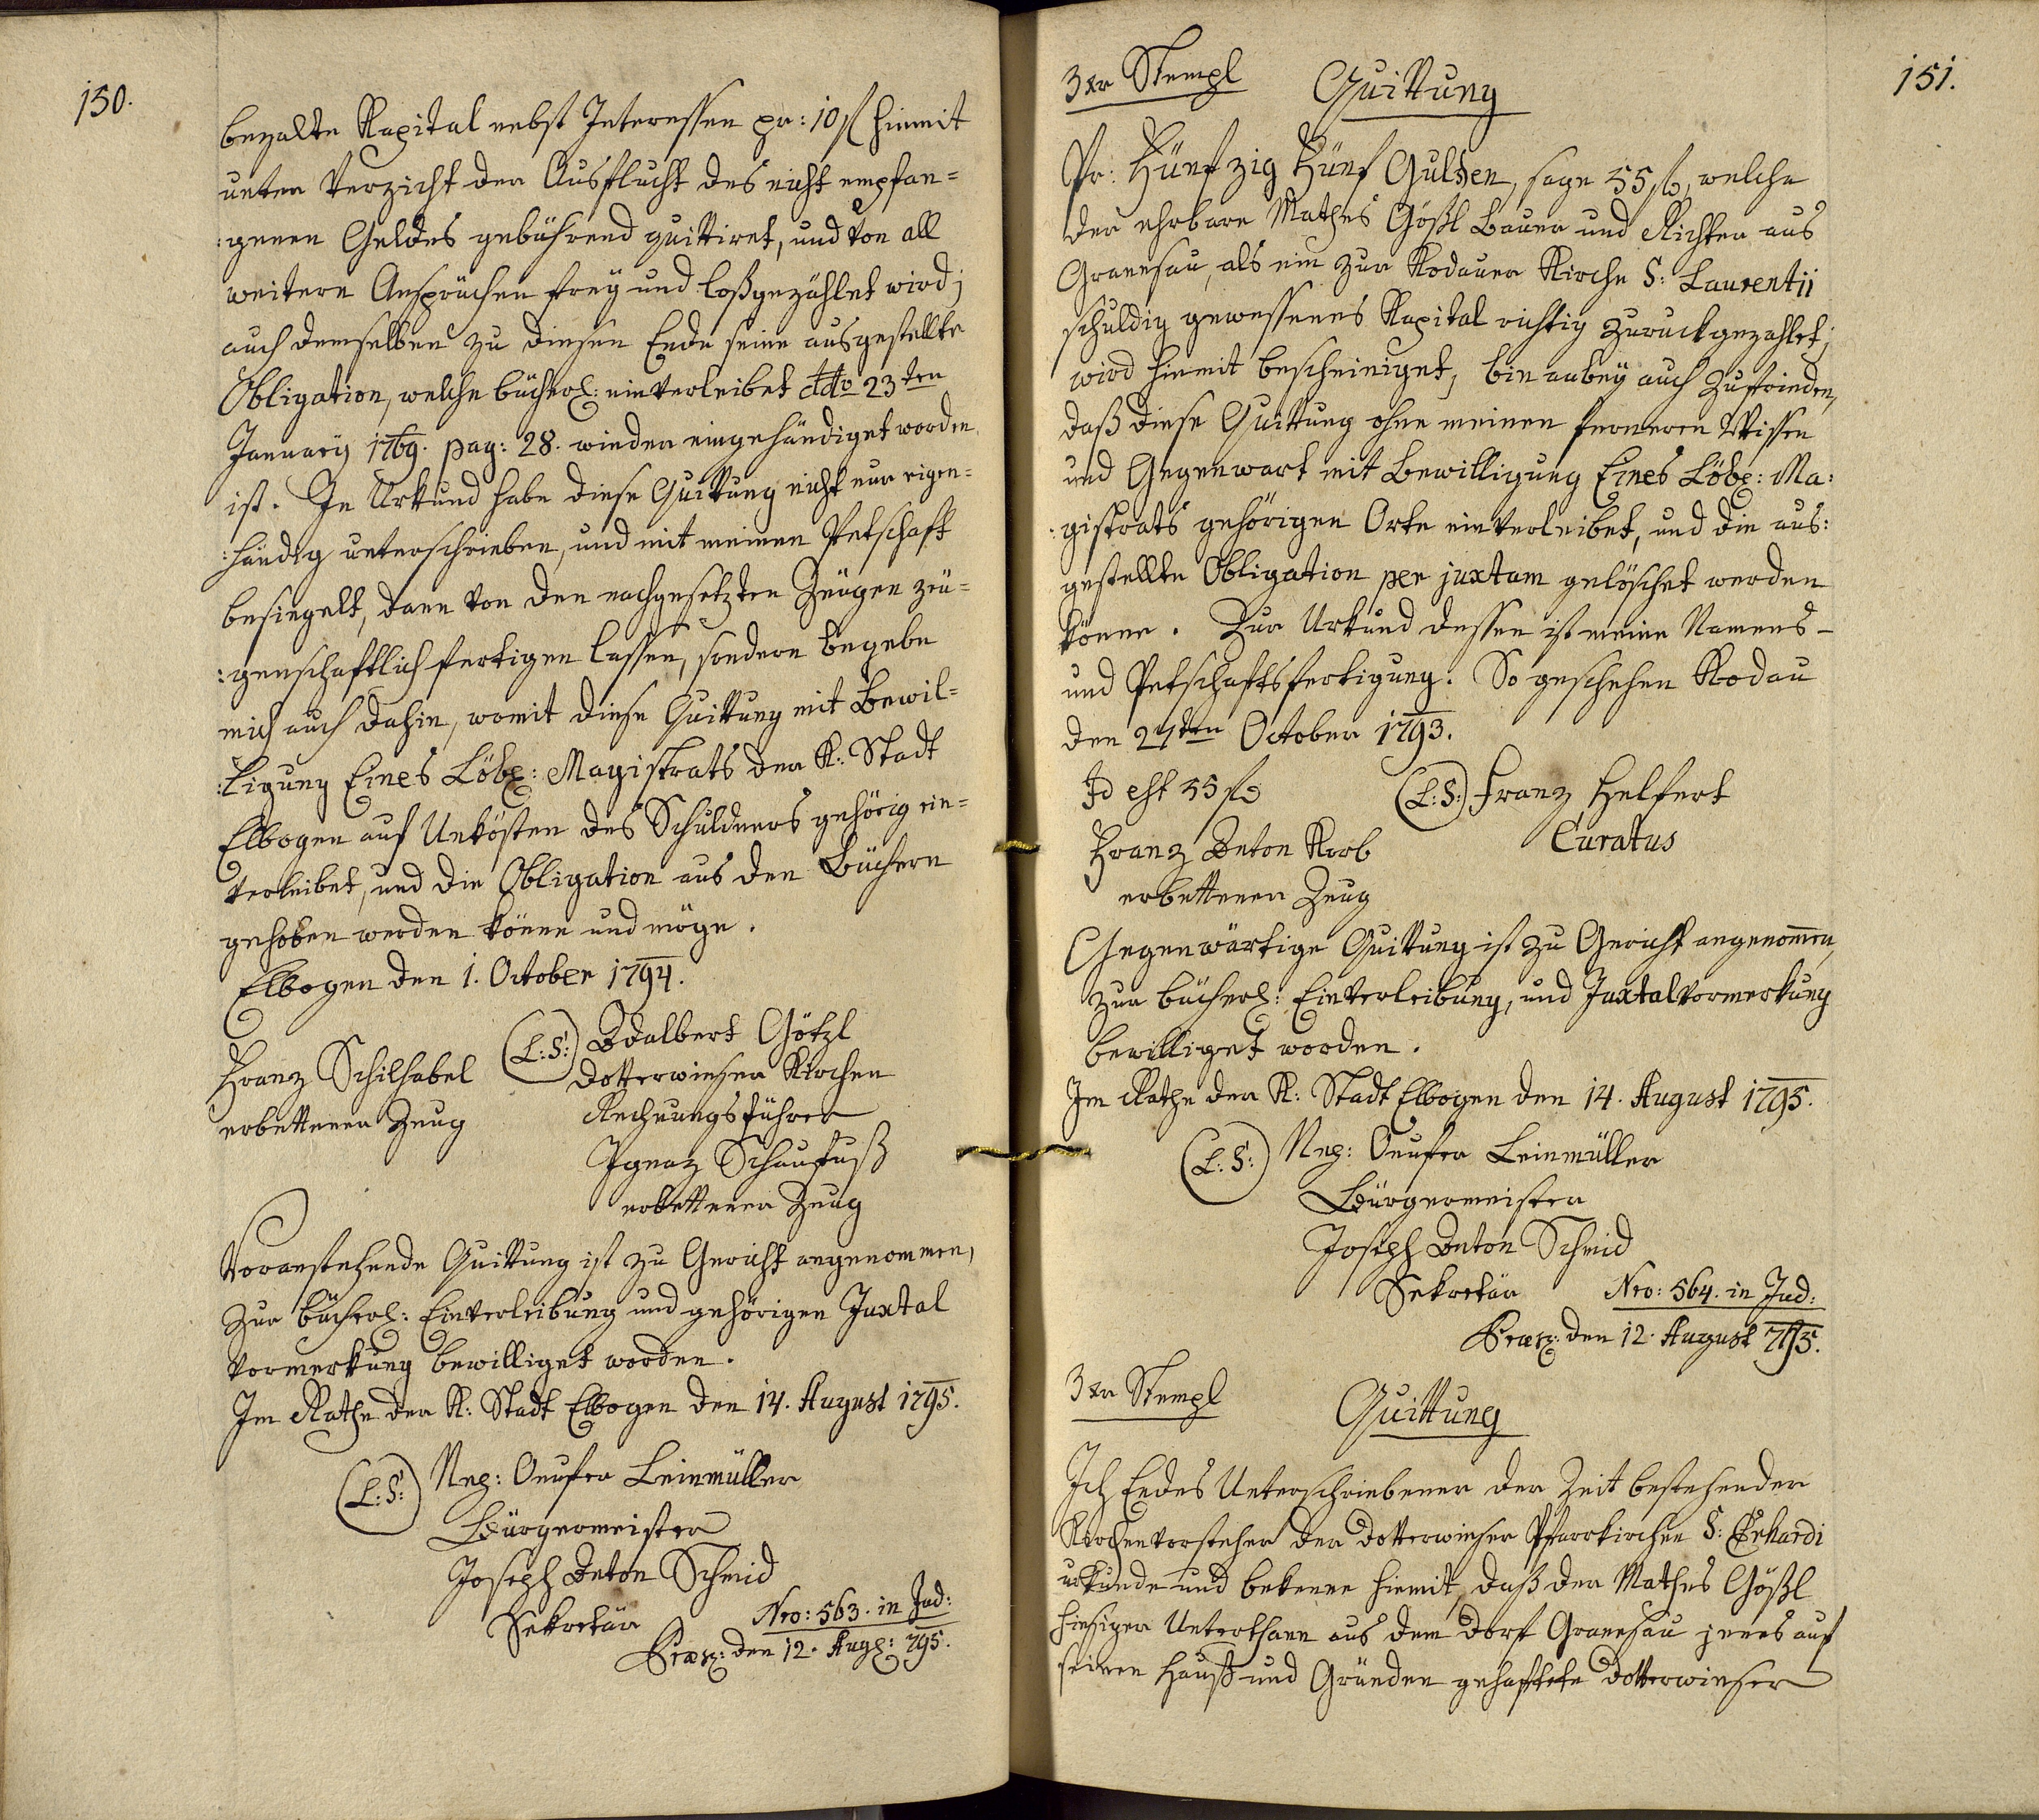 150.
bezalte Kapital nebst Interessen pr: 10 fl hiemit
unter Verzicht der Ausflucht des nicht empfan=
:genen Geldes gebührend quittiret, und von all
weitern Ansprüchen frey und loßgezählet wird;
auch demselben zu diesen Ende seine ausgestellte
Obligation, welche bücherl: einverleibet ddto 23ten
January 1769. pag: 28. wieder eingehändiget worden
ist. In Urkund habe diese Quittung nicht nur eigen=
:händig unterschrieben, und mit meinen Petschaft
besiegelt, dann von den nachgesetzten Zeugen zeu=
:genschaftlich fertigen lassen, sondern begebe
mich auch dahin, womit diese Quittung mit Bewil=
:ligung Eines Löbl: Magistrats der K: Stadt
Elbogen auf Unkösten des Schuldners gehörig ein=
verleibet, und die Obligation aus den Büchern
gehoben werden könne und möge.
Elbogen den 1. October 1794.
(L:S:) Adalbert Götzl
Franz Schilhabel Dotterwieser Kirchen
erbettener Zeug Rechnungsführer
Ignaz Schaufuß
erbettener Zeug
Voranstehende Quittung ist zu Gericht angenommen,
zur bücherl: Einverleibung und gehörigen Juxtal
Vormerkung bewilliget worden.
Im Rathe der K: Stadt Elbogen den 14. August 1795.
(L:S:) Nep: Onufer Leinmüller
Bürgermeister
Joseph Anton Schmid
Sekretär Nro: 563. in Jud:
Præs: den 12. Augl: 795.
151.
3 xr Stempl Quittung
Pr: Fünfzig Fünf Gulden, sage 55 fl, welche
der ehrbare Mathes Gößl Bauer und Richter aus
Granesau, als ein zur Kodauer Kirche S: Laurentii
schuldig gewessenes Kapital richtig zurückgezahlet;
wird hiemit bescheiniget, bin anbey auch zufrieden,
daß diese Quittung ohne meinen ferneren Wissen
und Gegenwart mit Bewilligung Eines Löbl: Ma:
:gistrats gehörigen Orte einverleibet, und die aus:
gestellte Obligation per juxtam gelöschet werden
könne. Zur Urkund dessen ist meine Namens-
und Petschaftsfertigung. So geschehen Kodau
den 27ten October 1793.
Id est 55 fl (L:S:) Franz Helfert
Franz Anton Korb Curatus
erbettener Zeug
Gegenwärtige Quittung ist zu Gericht angenom̄en,
zur bücherl: Einverleibung, und Juxtalvormerkung
bewilliget worden.
Im Rathe der K: Stadt Elbogen den 14. August 1795.
(L:S:) Nep: Onufer Leinmüller
Bürgermeister
Joseph Anton Schmid
Sekretär Nro: 564. in Jud:
Præs: den 12. August 795.
3 xr Stempl Quittung
Ich Endes Unterschriebener der Zeit bestehender
Kirchenvorsteher der Dotterwieser Pfarrkirchen S: Erhardi
urkunde und bekenne hiemit, daß der Mathes Gößl
hiesiger Unterthann aus dem Dorf Granesau jenes auf
seinen Hauß und Gründen gehaftete Dotterwieser